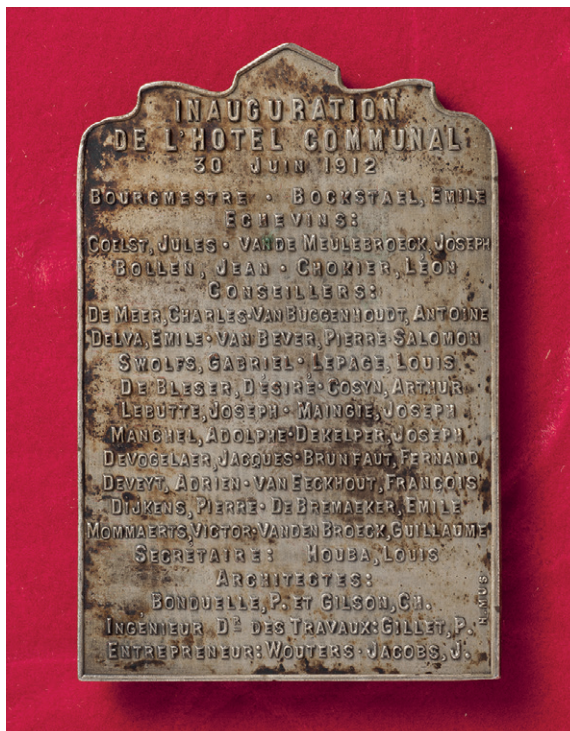 INAUGURATION
DE L'HOTEL COMMUNAL
30 JUIN 1912
BOURGMESTRE · BOCKSTAEL, EMILE
ECHEVINS:
COELST, JULES · VANDE MEULEBROECK, JOSEPH
BOLLEN, JEAN · CHOKIER, LÉON
CONSEILLERS:
DE MEER, CHARLES · VAN BUGGENHOUDT, ANTOINE
DELVA, EMILE · VAN BEVER, PIERRE-SALOMON
SWOLFS, GABRIEL · LEPAGE, LOUIS
DE BLESER, DÉSIRÉ · COSYN, ARTHUR
LEBUTTE, JOSEPH · MAINGIE, JOSEPH
MANCHEL, ADOLPHE · DEKELPER, JOSEPH
DEVOGELAER, JACQUES · BRUNFAUT, FERNAND
DEVEYT, ADRIEN · VAN EECKHOUT, FRANÇOIS
DIJKENS, PIERRE · DE BREMAEKER, EMILE
MOMMAERTS, VICTOR · VANDEN BROECK, GUILLAUME
SECRÉTAIRE: HOUBA, LOUIS
ARCHITECTES:
BONDUELLE, P. ET GILSON, CH.
INGENIEUR DR DES TRAVAUX: GILLET, P.
ENTREPRENEUR: WOUTERS · JACOBS, J.
H. MUS